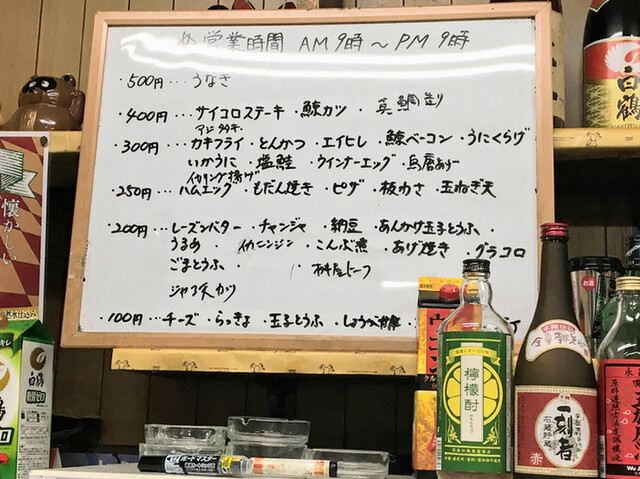 営業時間 AM 9時 ~ PM 9時
・500円…うなぎ
・400円…サイコロステーキ ・鯨カツ ・真鯛造り
アジタタキ・
・300円…カキフライ ・とんかつ ・エイヒレ ・鯨ベーコン ・うにくらげ
いかうに ・塩鮭 ・ウインナーエッグ
イカリング揚げ
・250円…ハムエッグ ・もだん焼き ・ピザ ・板わさ ・玉ねぎ天
・200円…レーズンバター ・チャンジャ ・納豆 ・あんかけ玉子とうふ
うるめ ・イカニンジン ・こんぶ煮 ・あげ焼き ・グラコロ
ごまとうふ
ジャコ天カツ
・100円…チーズ ・らっきょ ・玉子とうふ
白鶴
懐かしい
白鶴
檸檬酎
全量芋焼酎
一刻者
石蔵貯蔵
赤
お酒
ボードマスター